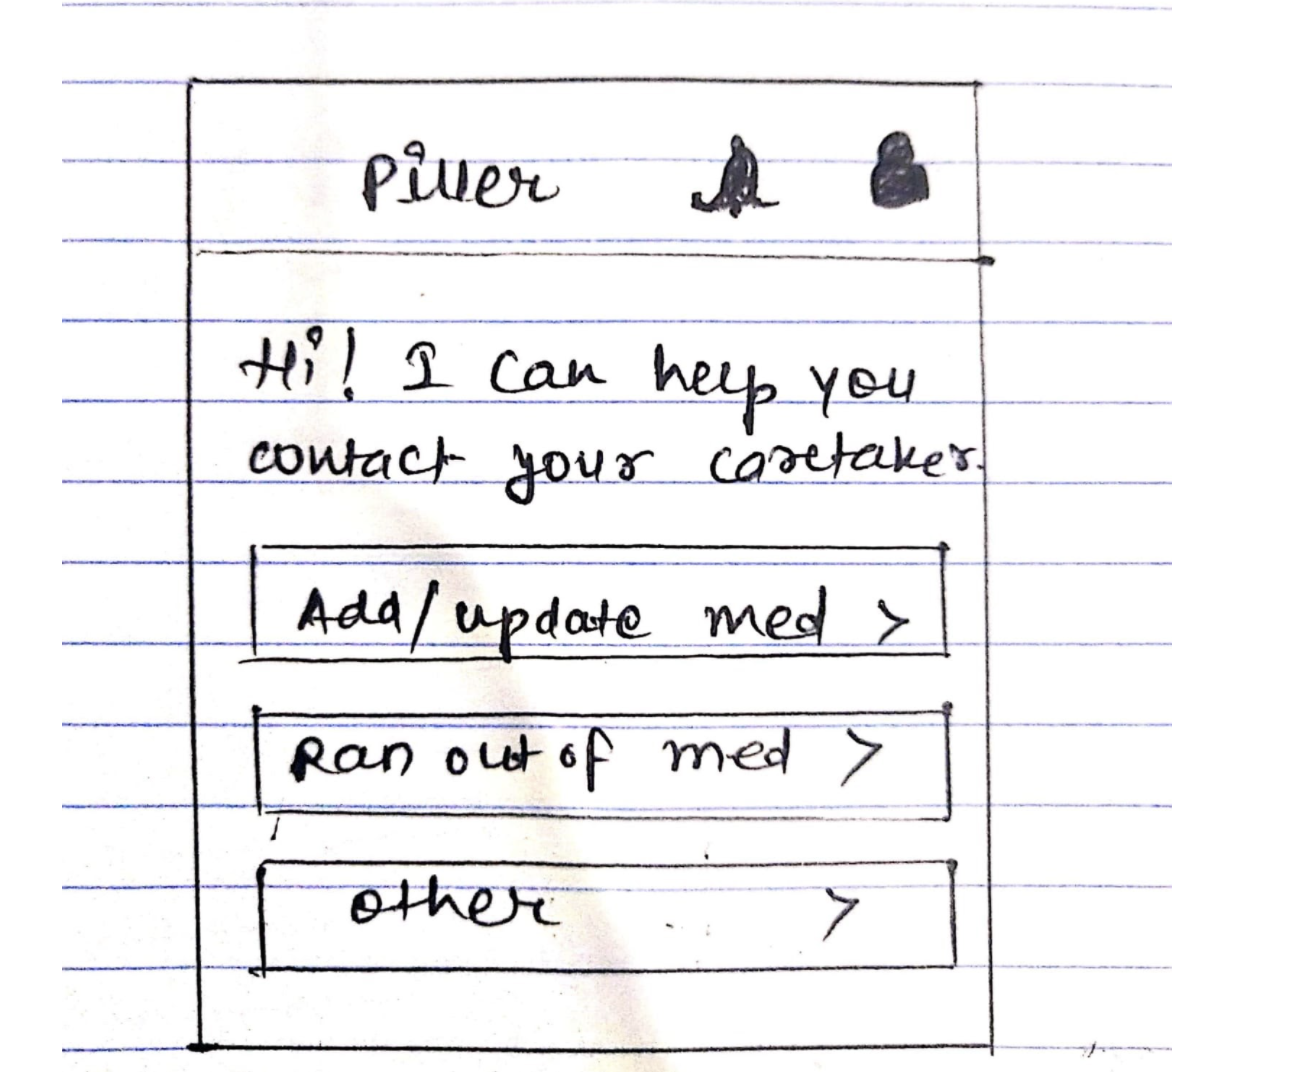 Piller
Hi! I can help you
contact your caretaker.
Add/update med >
Ran out of med >
other >